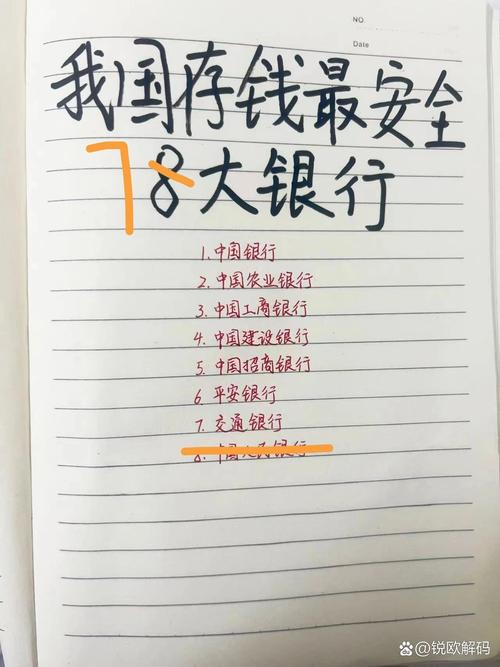 NO.
Date
我国存钱最安全
7 8大银行
1.中国银行
2.中国农业银行
3.中国工商银行
4.中国建设银行
5.中国招商银行
6.平安银行
7.交通银行
8.中国人民银行
锐欧解码